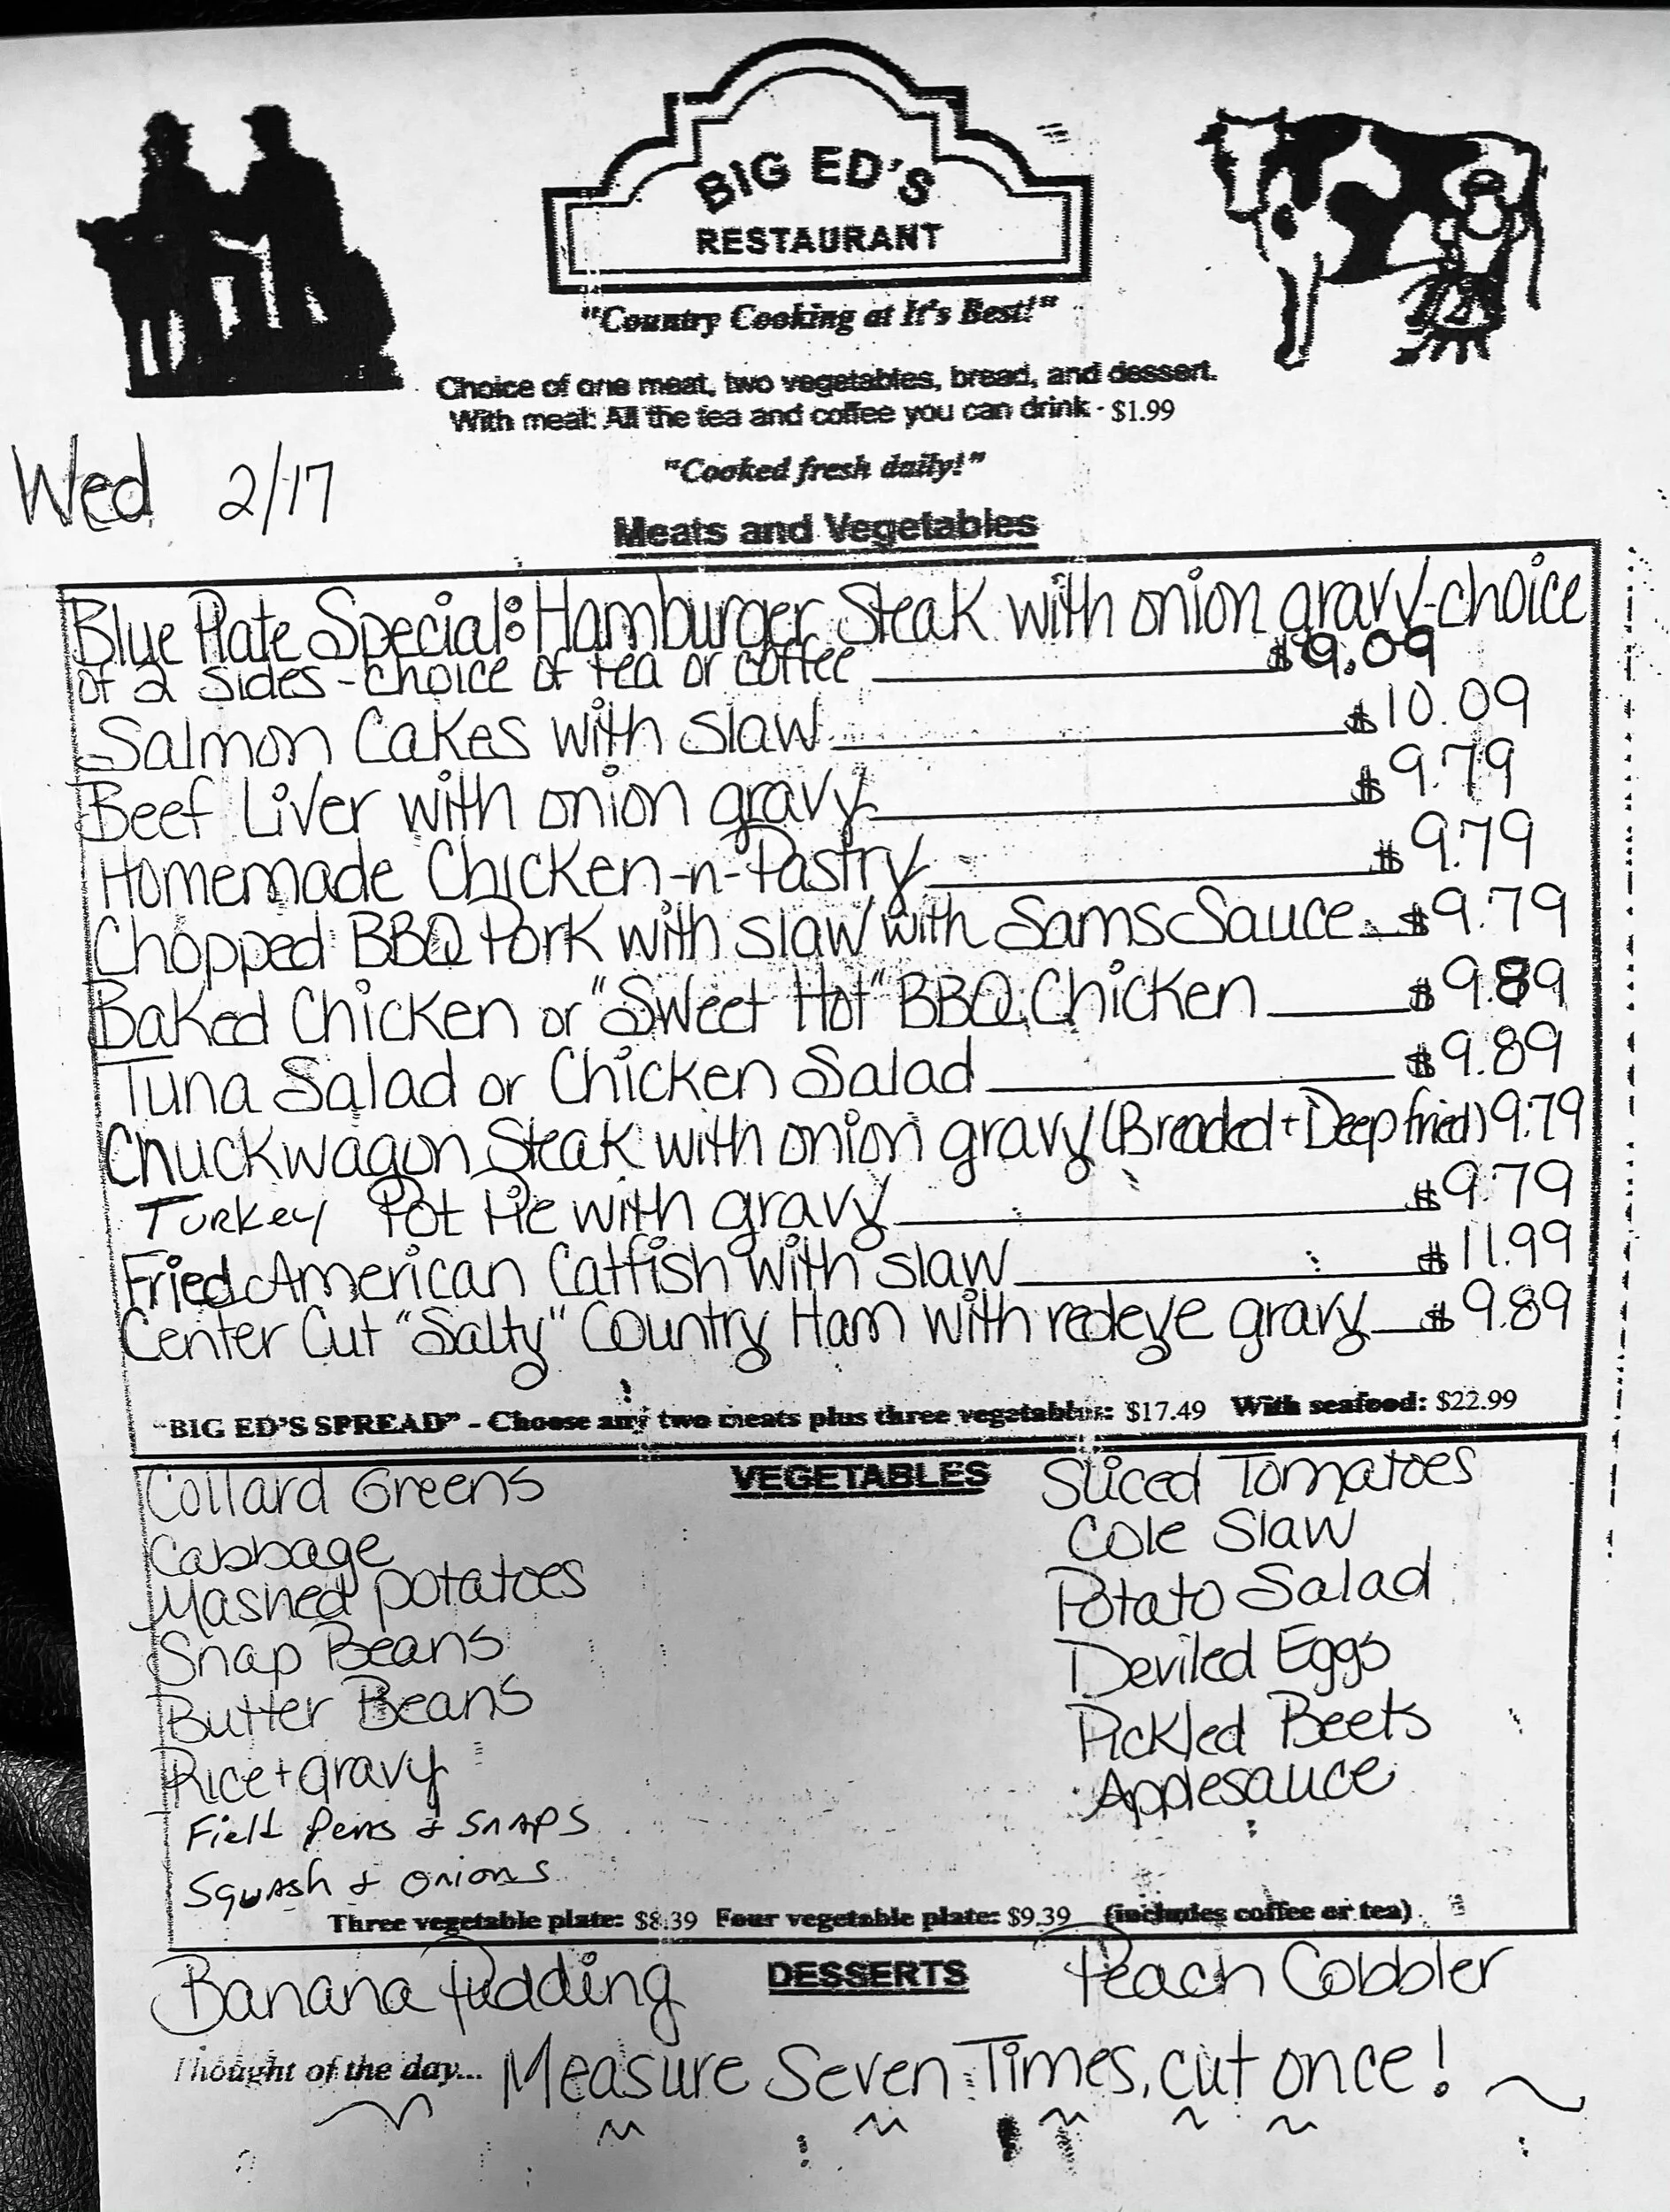 BIG ED'S
RESTAURANT
"Country Cooking at It's Best!"
Choice of one meat, two vegetables, bread, and dessert.
With meal: All the tea and coffee you can drink - $1.99
"Cooked fresh daily!"
Wed 2/17
Meats and Vegetables
Blue Plate Special: Hamburger Steak with onion gravy-choice
of 2 sides - choice of tea or coffee $9.09
Salmon Cakes with slaw $10.09
Beef Liver with onion gravy $9.79
Homemade Chicken-n-Pastry $9.79
Chopped BBQ Pork with slaw with Sams Sauce $9.79
Baked Chicken or "Sweet Hot" BBQ Chicken $9.89
Tuna Salad or Chicken Salad $9.89
Chuckwagon Steak with onion gravy (Breaded + Deep fried) 9.79
Turkey Pot Pie with gravy $9.79
Fried American Catfish with slaw $11.99
Center Cut "Salty" Country Ham with redeye gravy $9.89
"BIG ED'S SPREAD" - Choose any two meats plus three vegetables: $17.49 With seafood: $22.99
VEGETABLES
Collard Greens
Cabbage
Mashed potatoes
Snap Beans
Butter Beans
Rice + gravy
Field Peas & SNAPS
Squash & Onions
Sliced Tomatoes
Cole Slaw
Potato Salad
Deviled Eggs
Pickled Beets
Applesauce
Three vegetable plate: $8.39 Four vegetable plate: $9.39 (includes coffee or tea)
DESSERTS
Banana Pudding
Peach Cobbler
Thought of the day... Measure Seven Times, cut once!